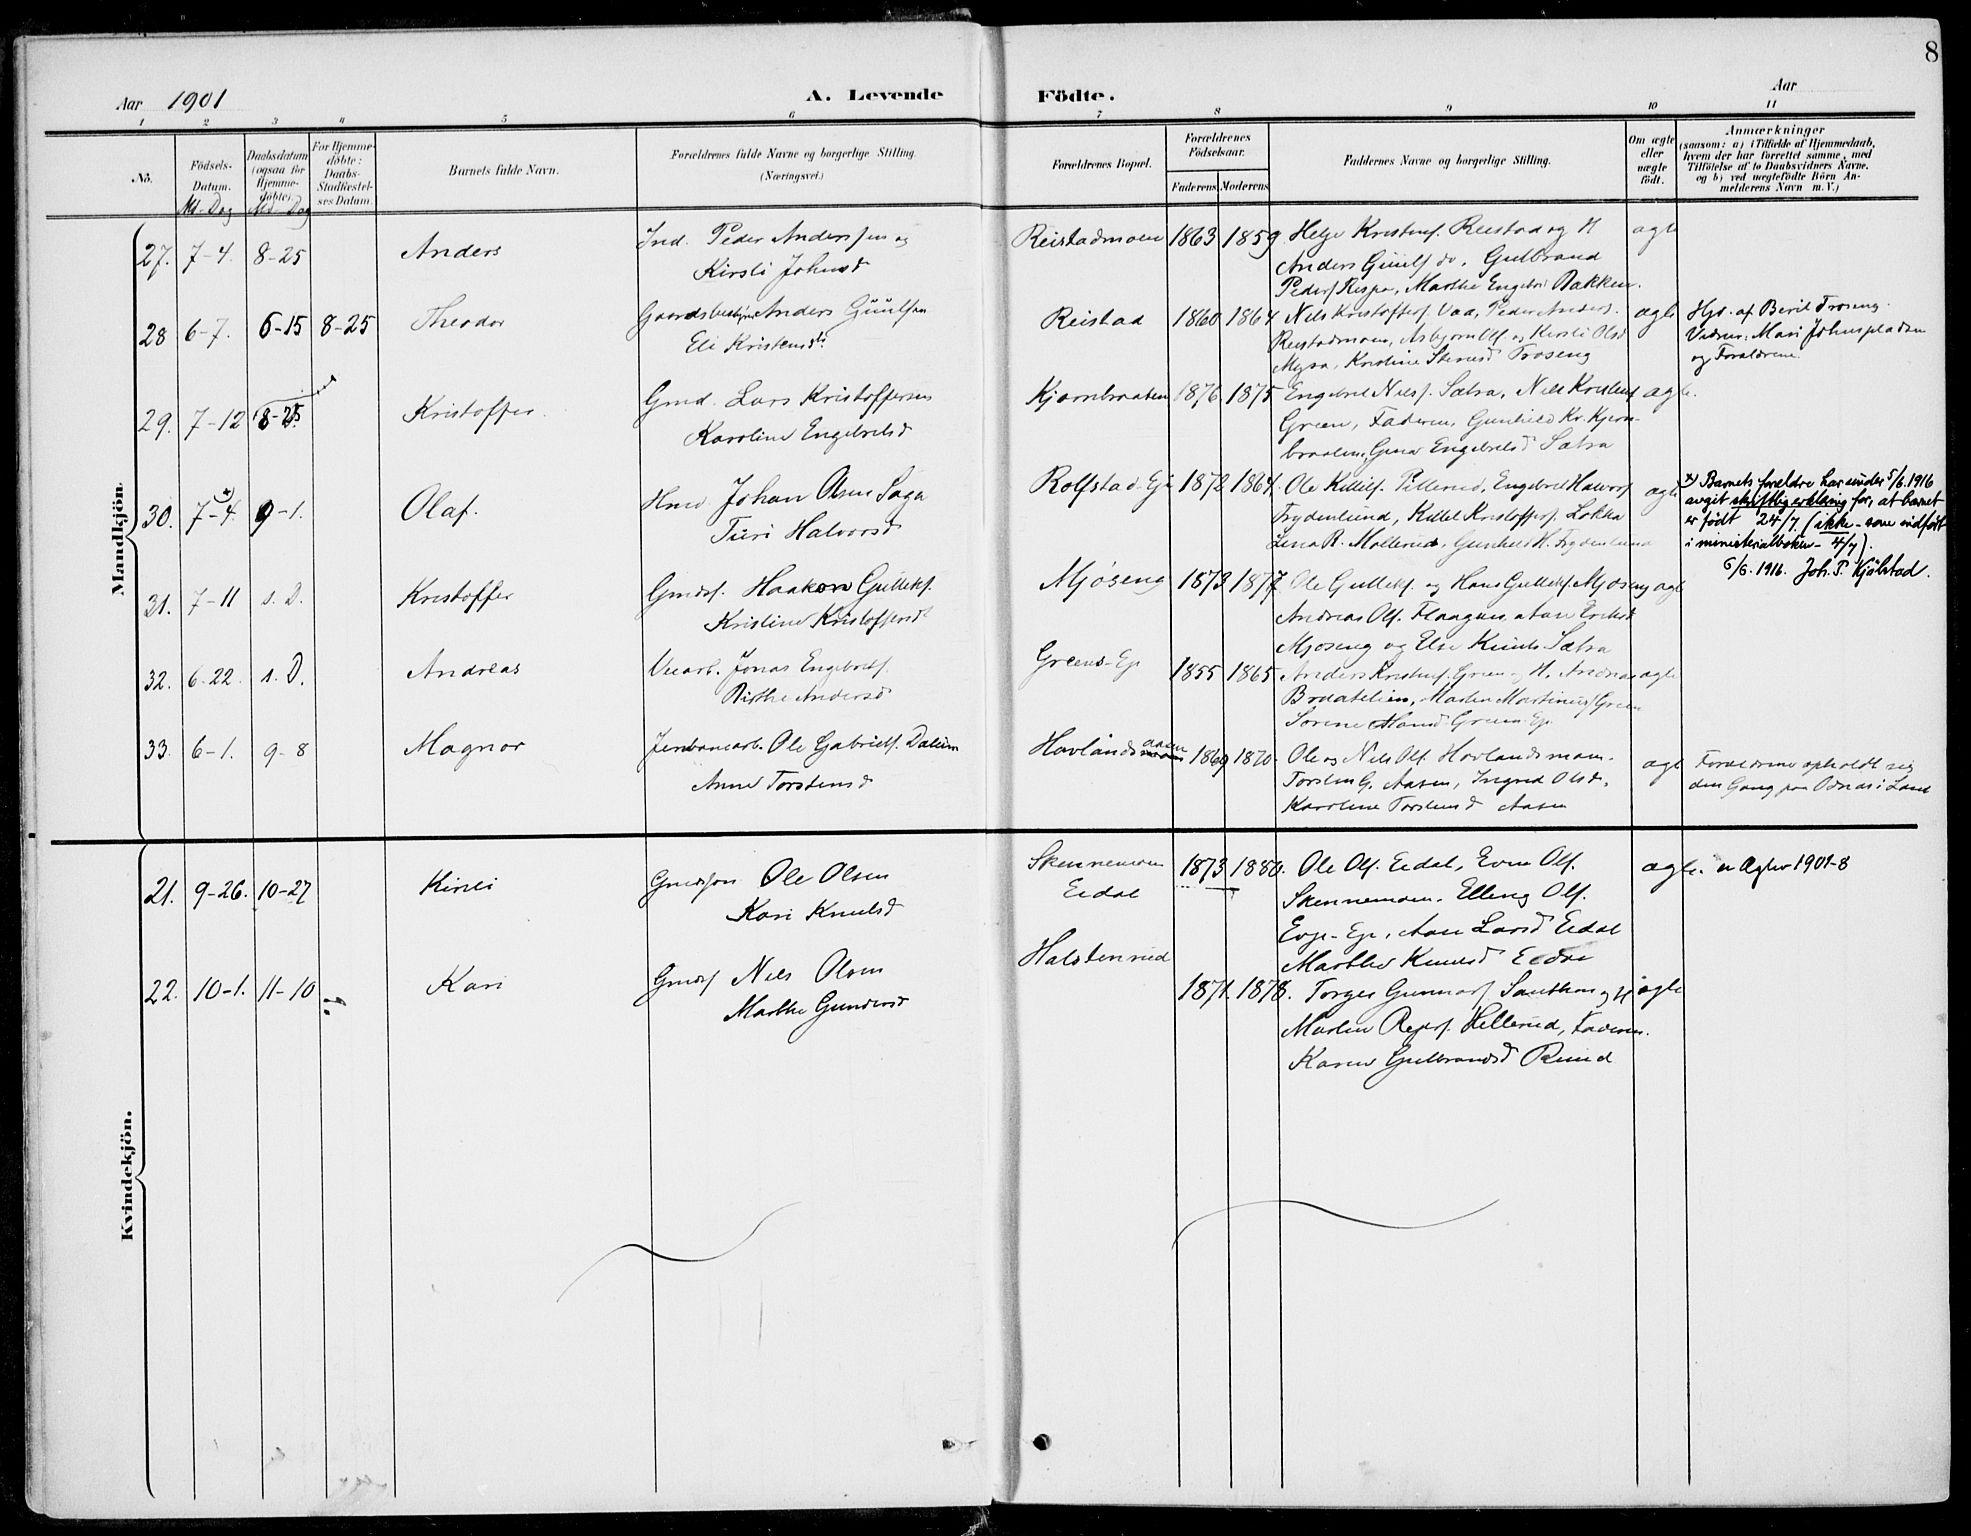 8
Aar 1901
A. Levende Födte.
Aar
1 2 3 4 5 6 7 8 9 10 11
No.
Födsels-
Datum.
Md. Dag
Daabsdatum
(ogsaa för
Hjemme-
döbte).
Md. Dag
For Hjemme-
döbte:
Daabs-
Stadfæstel-
ses Datum.
Barnets fulde Navn.
Forældrenes fulde Navne og borgerlige Stilling.
(Næringsvei.)
Forældrenes Bopæl.
Forældrenes
Födselsaar.
Faderens Moderens
Faddernes Navne og borgerlige Stilling.
Om ægte
eller
uægte
födt.
Anmærkninger
(saasom: a) i Tilfælde af Hjemmedaab,
hvem der har forrettet samme, med
Tilföielse af to Daabsvidners Navne.
og b) ved uægtefödte Börn An-
melderens Navn m. V.)
Mandkjön.
27. 7-4. 8-25 Anders
Ind. Peder Anderssen og
Kirsti Johnsd
Reistadmoen 1863 1859
Helge Kristens. Reistad og H
Anders Guuls do. Gulbrand
Peders Rispa, Marthe Engebr. Bakken.
ægte
28 6-7. 6-15 8-25 Theodor
Gaardsbestyrer Anders Guulsen
Eli Kristensdt.
Reistad 1860 1864
Nels Kristoffers. Vaa, Peder Anders.
Reistadmoen, Asbjørn Ols. og Kirsti Olsd
Mysa, Kristine Stensd Troseng
ægte
Hjd. af Berit Troseng.
Vidner: Mari Johnspladsen
og Forældrene.
29. 7-12 8-25. Kristoffer.
Gmd. Lars Kristoffersen
Karoline Engebretsd
Kjørnbraaten 1876. 1875
Engebret Nels. Sætra, Nels Kristens
Green, Faderen, Gunhild Kr. Kjørn-
braaten, Gina Engebretsd Sætra
ægte.
30. 7-4. 9-1. Olaf.
Hmd Johan Olsen Saga
Turi Halvorsd
Rolfstad Eje 1872 1864.
Ole Killils. Pillerud, Engebret Halvors
Frydenlund, Killel Kristoffers. Løkka
Lina R. Møllerud, Gunhild H. Frydenlund
ægte
x) Barnets foreldre har under 5/6. 1916
avgit skriftlig erklæring for, at barnet
er født 24/7. (ikke - som indført
i ministerialboken - 4/7).
6/6. 1916. Joh. P. Kjølstad.
31. 7-11 s. D. Kristoffer
Gmds. Haakon Gulleks.
Kristine Kristoffersdt
Mjøseng 1873 1877
Ole Gulleks. og Hans Gulleks. Mjøseng
Andreas Ols. Flaagen, Ane Eriksd
Mjøseng og Else Knuts. Sætra
ægte
32. 6-22. s. D. Andreas
Veiarb. Jonas Engebrets.
Birthe Andersd
Greens-Eje 1855 1865
Anders Kristens. Green og H. Andreas
Braatelien, Martin Martinius Green
Sørine Hansd Greens-Eje
ægte
33. 6-1. 9-8 Magnor
Jernbanearb. Ole Gabriels. Dalum
Anne Torstensd
Hovlandsaasen 1869 1870.
Ole og Nils Ols. Hovlandsmoen.
Torsten G. Aasen, Ingrid Olsd.
Karoline Torstensd Aasen
ægte
Forældrene opholdt sig
den Gang paa Odnæs i Land
Kvindekjön.
21. 9-26. 10-27 Kirsti
Gmdssøn Ole Olsen
Kari Knutsd
Skinnemoen
Eidal
1873 1880.
Ole Ols. Eidal, Even Ols.
Skinnemoen, Elling Ols.
Evje-Eje, Ane Larsd Eidal
Marthe Knutsd Eidal
ægte.
22. 10-1. 11-10 Kari
Gmds Nils Olsen
Marthe Gundersd
Halstenrud
1871. 1878.
Torger Gunnars. og H
Martin Repers. Hillerud, Faderen.
Karen Gulbrandsd Ruud
ægte